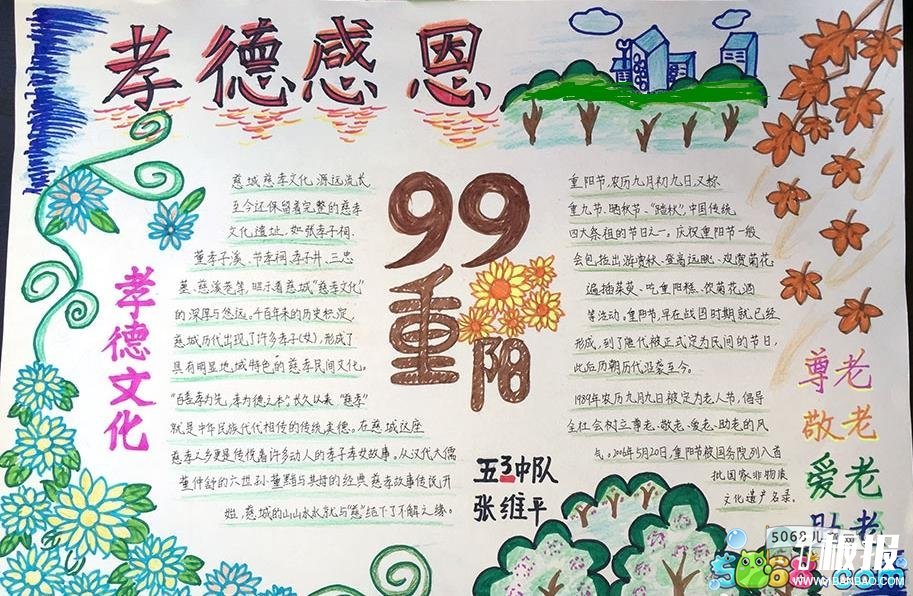 孝德感恩
孝德文化
慈城慈孝文化源远流长
至今还保留着完整的慈孝
文化遗址,如张孝子祠、
董孝子溪、节孝祠、孝子井、三忠
墓、慈溪巷等,昭示着慈城“慈孝文化”
的深厚与悠远。千百年来的历史积淀,
慈城历代出现了许多孝子(女),形成了
具有明显地域特色的慈孝民间文化。
“百善孝为先,孝为德之本”,长久以来“慈孝”
就是中华民族代代相传的传统美德。在慈城这座
慈孝之乡更是传悦着许多动人的孝子孝女故事。从汉代大儒
董仲舒的六世孙董黯与其母的经典慈孝故事传民开
始,慈城的山山水水就与“慈”结下了不解之缘。
99
重阳
五3中队
张维平
重阳节,农历九月初九日,又称
重九节、晒秋节、“踏秋”,中国传统
四大祭祖的节日之一。庆祝重阳节一般
会包括出游赏秋、登高远眺、观赏菊花
遍插茱萸、吃重阳糕、饮菊花酒
等活动。重阳节,早在战国时期就已经
形成,到了唐代被正式定为民间的节日,
此后历朝历代沿袭至今。
1989年农历九月九日被定为老人节,倡导
全社会树立尊老、敬老、爱老、助老的风
气。2006年5月20日,重阳节被国务院列入首
批国家非物质
文化遗产名录。
尊老
敬老
爱老
助老
5068儿
板报
WWW.1BANBAO.COM